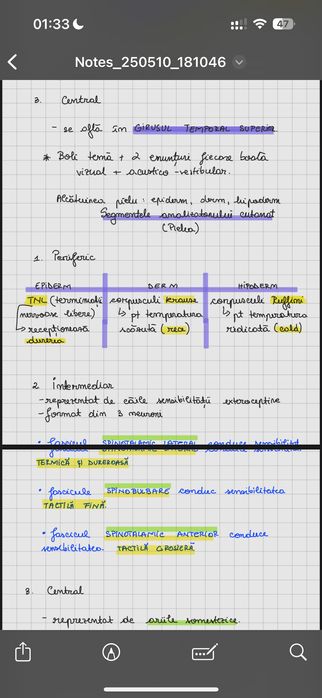 01:33
47
Notes_250510_181046
3. Central
- se află în GIRUSUL TEMPORAL SUPERIOR
* Boli temă + 2 enunțuri fiecare boală
vizual + acustico-vestibular.
Alcătuirea pielii: epiderm, derm, hipoderm
Segmentele analizatorului cutanat
(Pielea)
1. Periferic
EPIDERM DERM HIPODERM
TNL (terminații corpusculi Krause corpusculi Ruffini
nervoase libere) ↳ pt temperatura ↳ pt temperatura
↳ recepționează scăzută (rece) ridicată (cald)
durerea
2. Intermediar
- reprezentat de căile sensibilității exteroceptive
- format din 3 neuroni
• fascicul SPINOTALAMIC LATERAL conduce sensibilitatea
TERMICĂ ȘI DUREROASĂ
• fascicule SPINOBULBARE conduc sensibilitatea
TACTILĂ FINĂ.
• fascicul SPINOTALAMIC ANTERIOR conduce
sensibilitatea TACTILĂ GROSIERĂ
3. Central
- reprezentat de ariile somestezice.